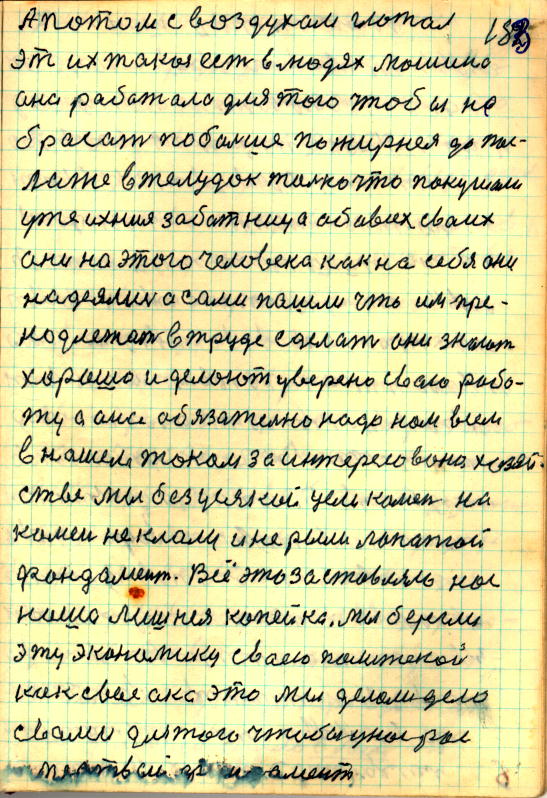 183
А потом с воздухом глотал
эт их такоя ест в людях машина
она работала для того чтобы не
бросат побалше пожирнея да пос-
лаже в желудок толко что покушали
уже ихния заботница об авех сваих
они на этого человека как на себя они
надеялис а сами пашли что им пре-
надлежат в труде сделат они знают
харошо и делают уверено сваю рабо-
ту а она обязателно надо нам всем
в нашем таком заинтересовона хозяй-
стве мы без усякой цели камен на
камен не клали и не рыли лопаткой
фондамент. Всё это заставляло нас
наша лишнея копейка. мы берегли
эту экономику сваею политекой
как свае ока это мы делали дело
свами для того чтобы у нас рос